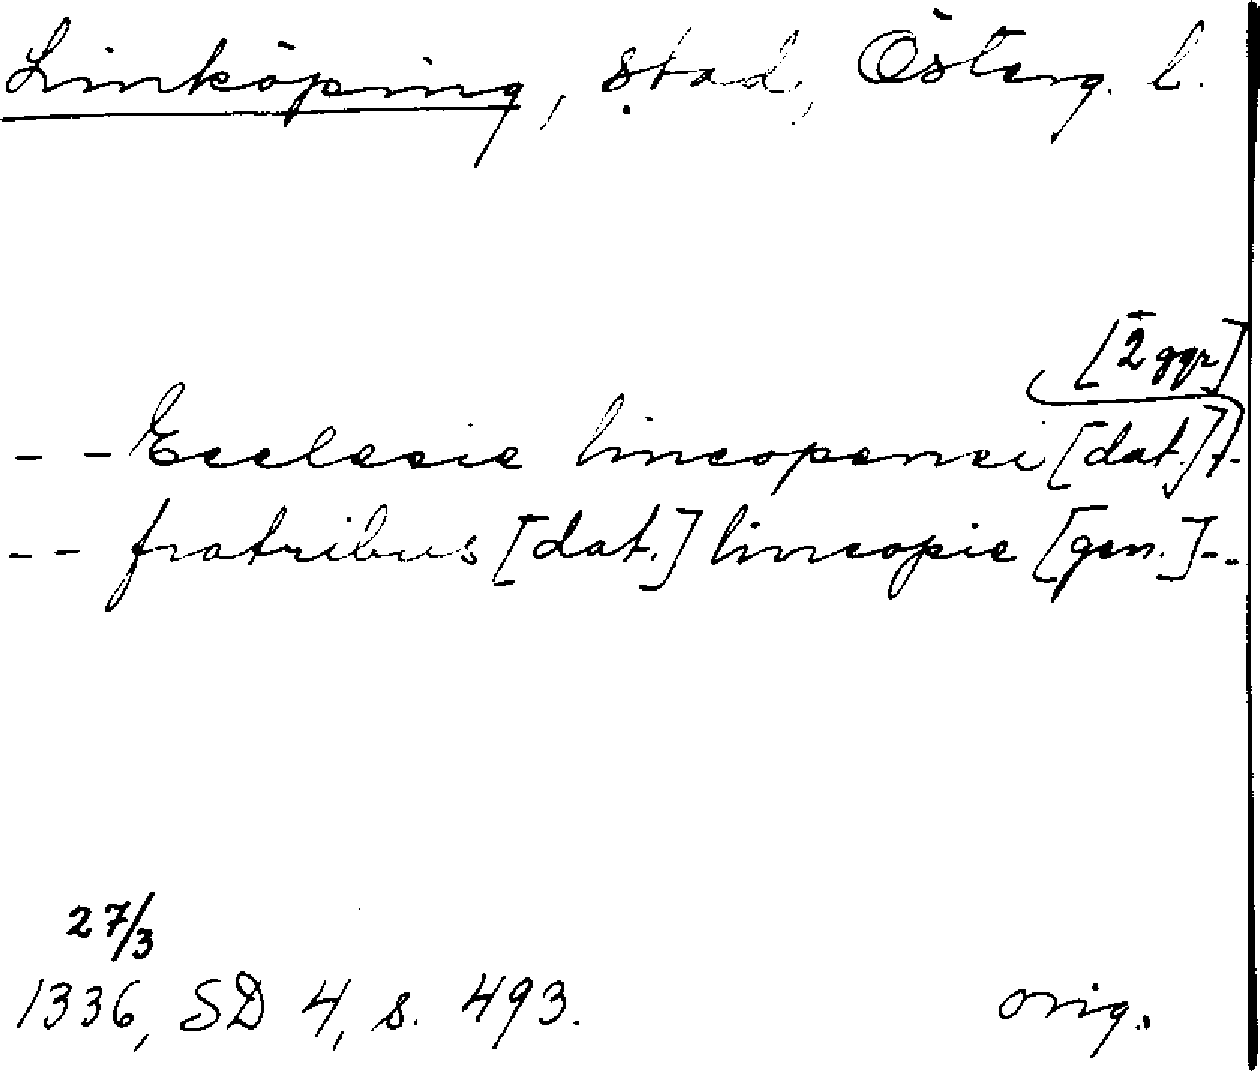 Linköping, stad, Österg. l.
[2 ggr]
- - Ecclesie lincopensi [dat.] -.
- - fratribus [dat.] lincopie [gen.] - -
27/3
1336, SD 4, s. 493. orig.